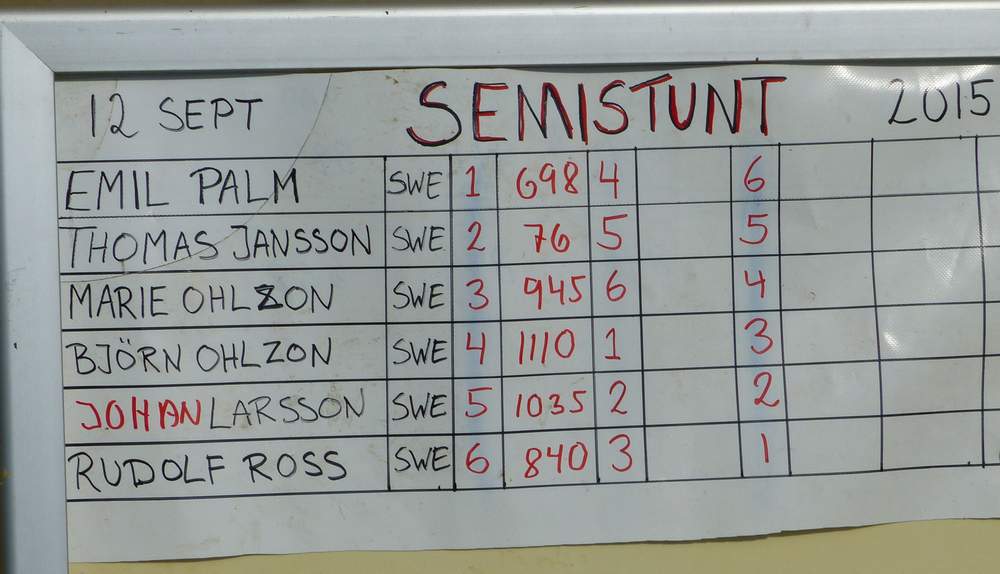 12 SEPT SEMISTUNT 2015
EMIL PALM SWE 1 698 4 6
THOMAS JANSSON SWE 2 76 5 5
MARIE OHLZON SWE 3 945 6 4
BJÖRN OHLZON SWE 4 1110 1 3
JOHAN LARSSON SWE 5 1035 2 2
RUDOLF ROSS SWE 6 840 3 1